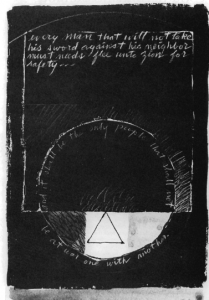 every man that will not take
his sword against his neighbor
must needs flee unto Zion for
safety...
and it shall be the only people that shall not
be at war one with another.